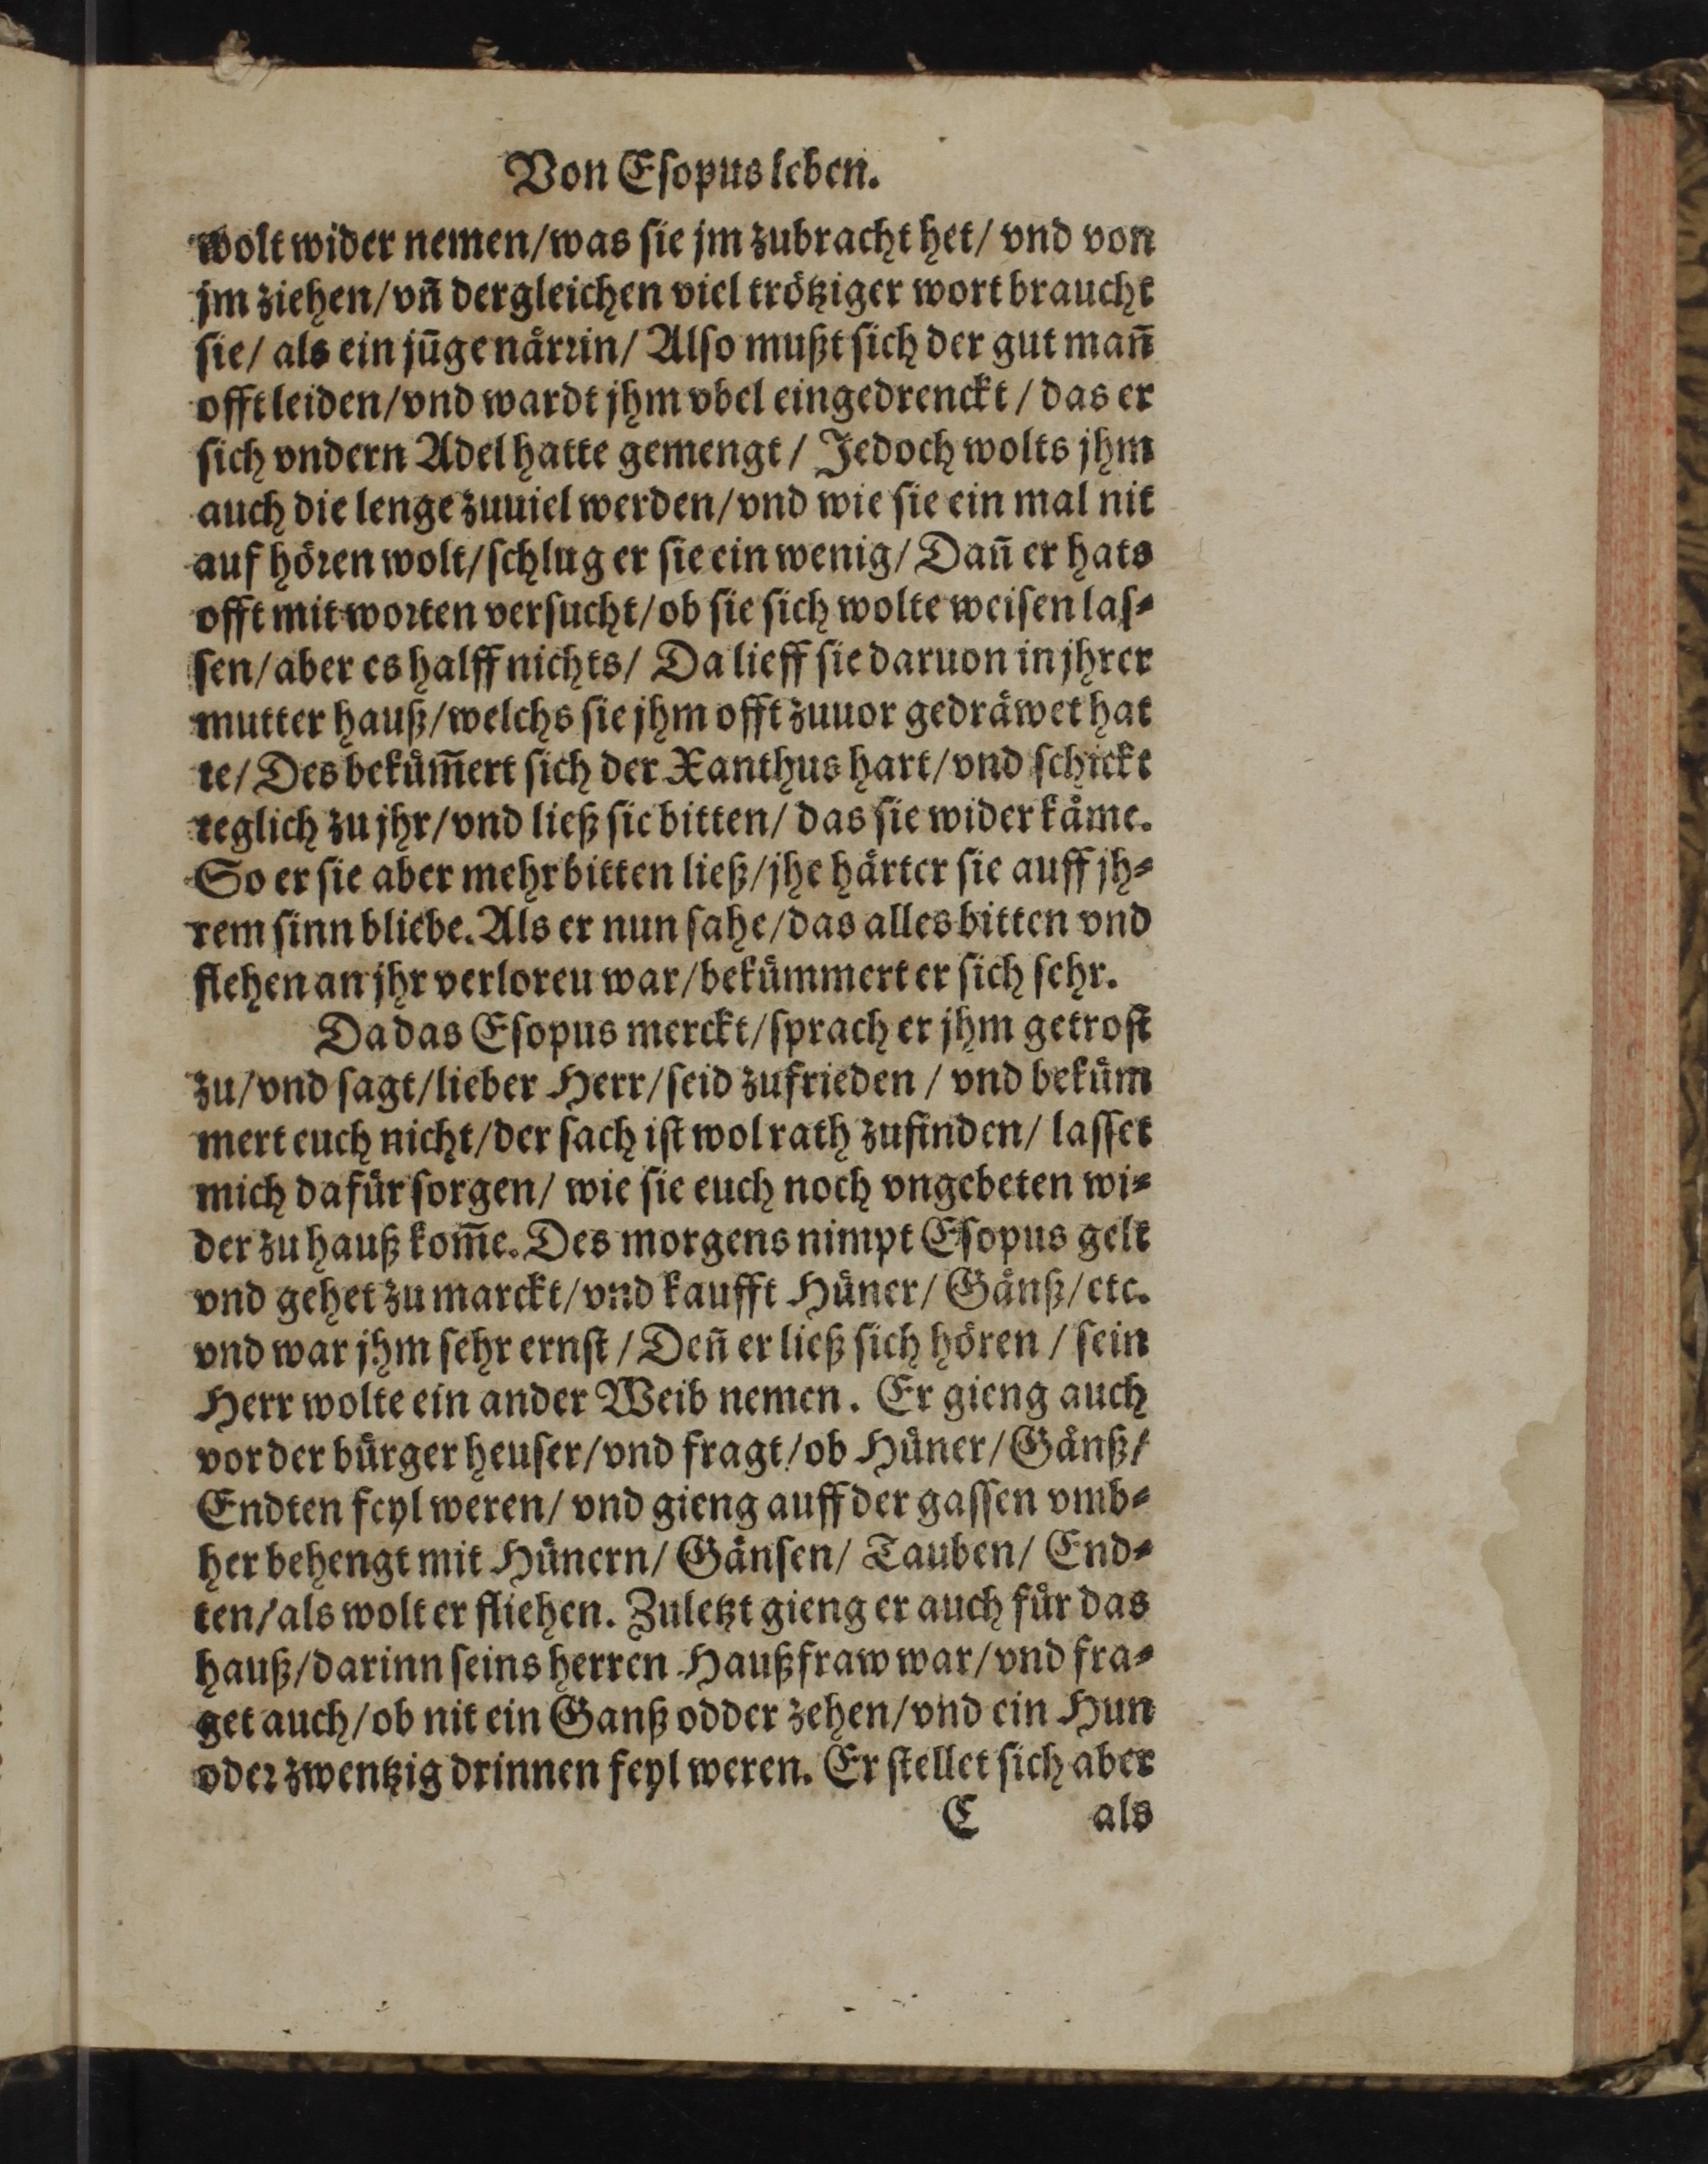 Von Eſopus leben.
wolt wider nemen/was ſie jm zubracht het/ vnd von
jm ziehen/vñ dergleichen viel trötziger wort braucht
ſie/ als ein jũge nårꝛin/ Alſo mußt ſich der gut mañ
offt leiden/vnd wardt jhm vbel eingedrenckt / das er
ſich vndern Adel hatte gemengt / Jedoch wolts jhm
auch die lenge zuuiel werden/vnd wie ſie ein mal nit
auf höꝛen wolt/ſchlug er ſie ein wenig/ Dañ er hats
offt mit woꝛten verſucht/ob ſie ſich wolte weiſen laſ⸗
ſen/aber es halff nichts/ Da lieff ſie daruon in jhrer
mutter hauß/welchs ſie jhm offt zuuor gedråwet hat
te/ Des bekům̃ert ſich der Xanthus hart/vnd ſchickt
teglich zu jhr/vnd ließ ſie bitten/ das ſie wider kåme.
So er ſie aber mehr bitten ließ/jhe hårter ſie auff jh⸗
rem ſinn bliebe. Als er nun ſahe/das alles bitten vnd
flehen an jhr verloreu war/bekůmmert er ſich ſehr.
Da das Eſopus merckt/ſprach er jhm getroſt
zu/vnd ſagt/lieber Herr/ſeid zufrieden / vnd beküm
mert euch nicht/der ſach iſt wol rath zufinden/ laſſet
mich dafür ſorgen/ wie ſie euch noch vngebeten wi⸗
der zu hauß kom̃e. Des morgens nimpt Eſopus gelt
vnd gehet zu marckt/vnd kaufft Hüner/ Gånß/etc.
vnd war jhm ſehr ernſt / Deñ er ließ ſich hören / ſein
Herr wolte ein ander Weib nemen. Er gieng auch
vor der bürger heuſer/vnd fragt/ob Hüner/Gånß/
Endten feyl weren/ vnd gieng auff der gaſſen vmb⸗
her behengt mit Hünern/ Gånſen/ Tauben/ End⸗
ten/als wolt er fliehen. Zuletzt gieng er auch für das
hauß/darinn ſeins herren Haußfraw war/vnd fra⸗
get auch/ob nit ein Ganß odder zehen/vnd ein Hun
odeꝛ zwentzig drinnen feyl weren. Er ſtellet ſich aber
C als